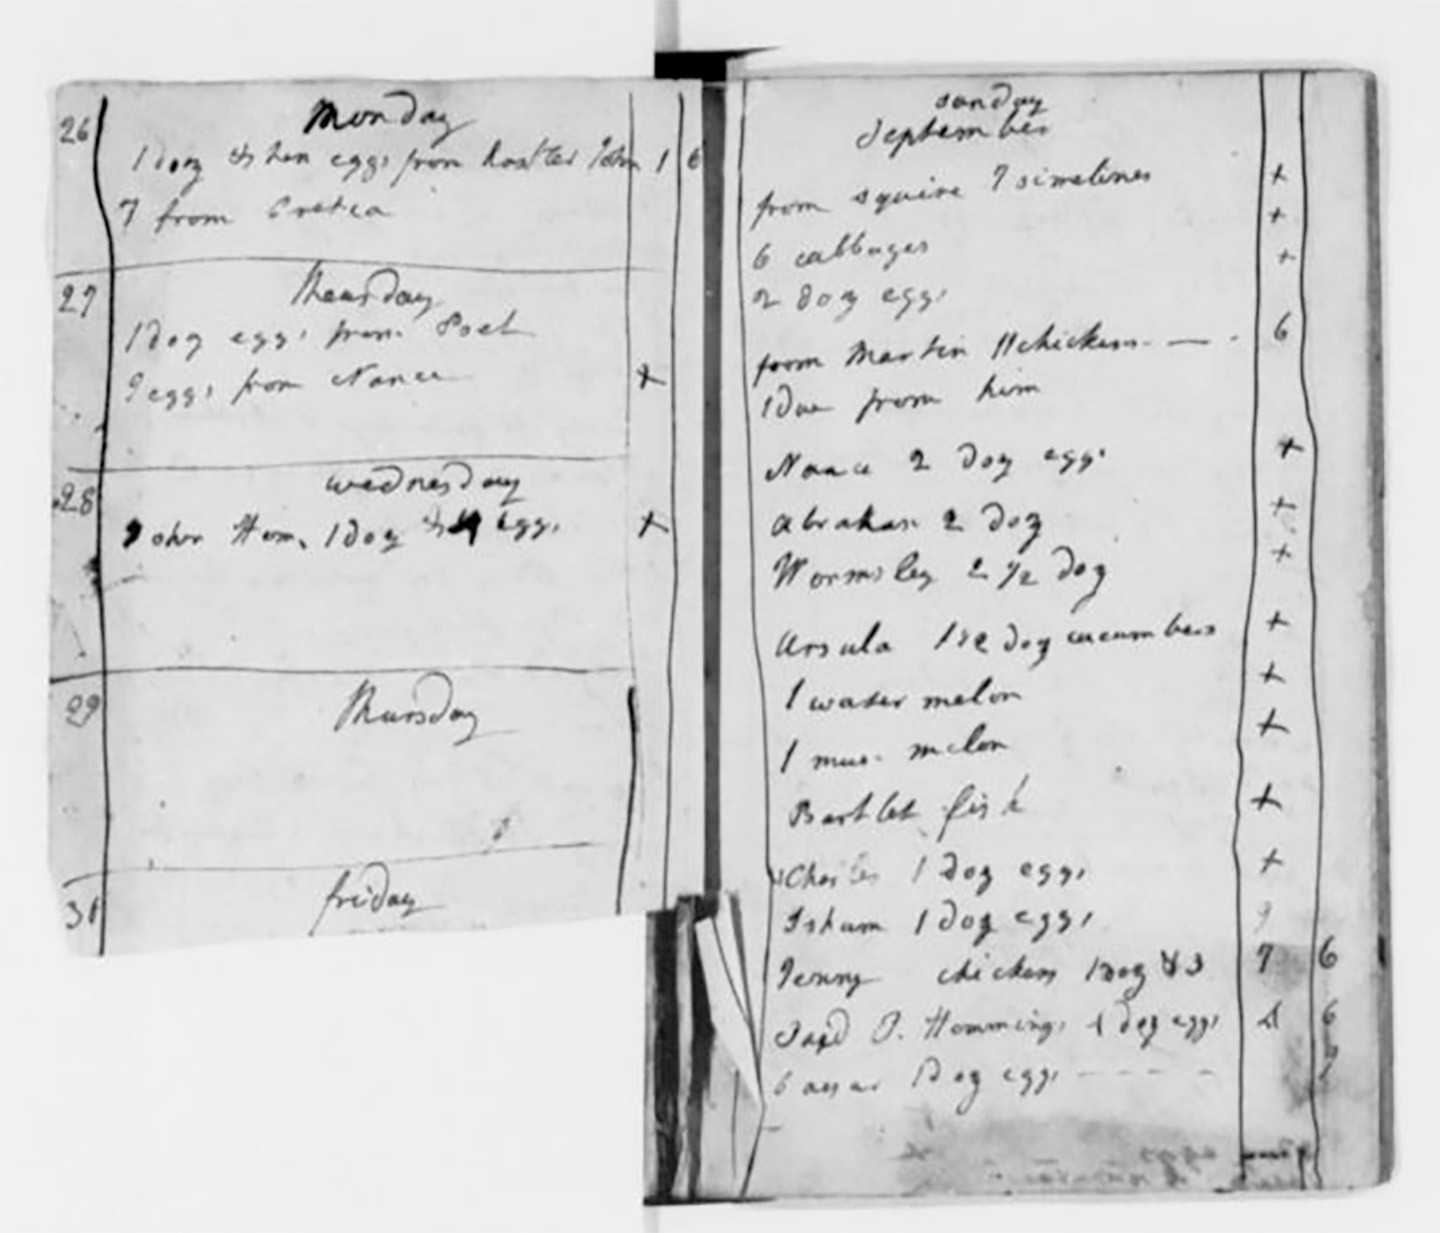 26 Monday
1 doz & hen eggs from John 1 6
7 from Cretia
27 Theusday
1 Doz eggs from Poet
9 eggs from Nance +
28 wednesday
John Hem. 1 Doz eggs +
29 Thursday
friday
sunday
September
from squire 7 simelines +
6 cabbages +
2 doz eggs +
from Martin 11 chickens - — - 6
1 Due from him
Nance 2 Doz eggs +
abraham 2 Doz +
Wormsley 2 1/2 Doz +
Ursula doz cucumbers +
1 water melon +
1 mus. melon +
Bartlet fish +
Charles 1 Doz eggs +
Isham 1 Doz eggs 9
Jenny chickens 1 Doz & 3 7 6
Hemmings doz eggs 6
Caesar 1 Doz eggs - - - - -